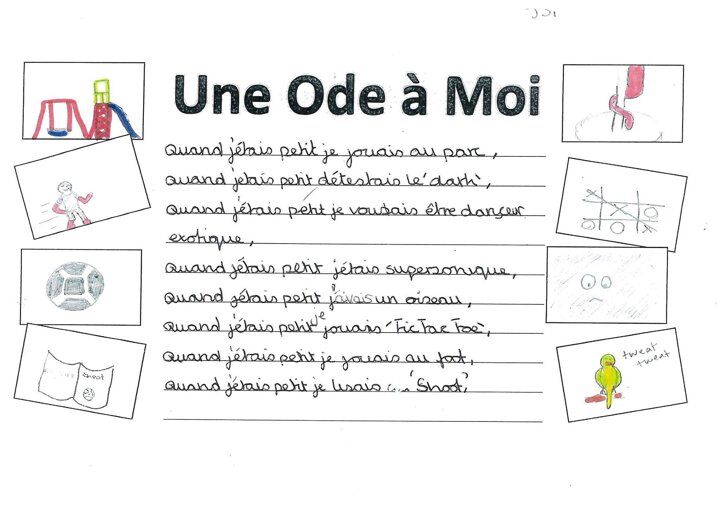 Une Ode à Moi
Quand j'étais petit je jouais au parc,
Quand j'etais petit détestais le 'dark',
Quand j'étais petit je voudais être dançeur
exotique,
Quand j'étais petit j'étais supersonique,
Quand j'étais petit j'avais un oiseau,
Quand j'étais petit je jouais 'Tic Tac Toe',
Quand j'étais petit je jouais au foot,
Quand j'étais petit je lisais ... 'Shoot',
tweat
tweat